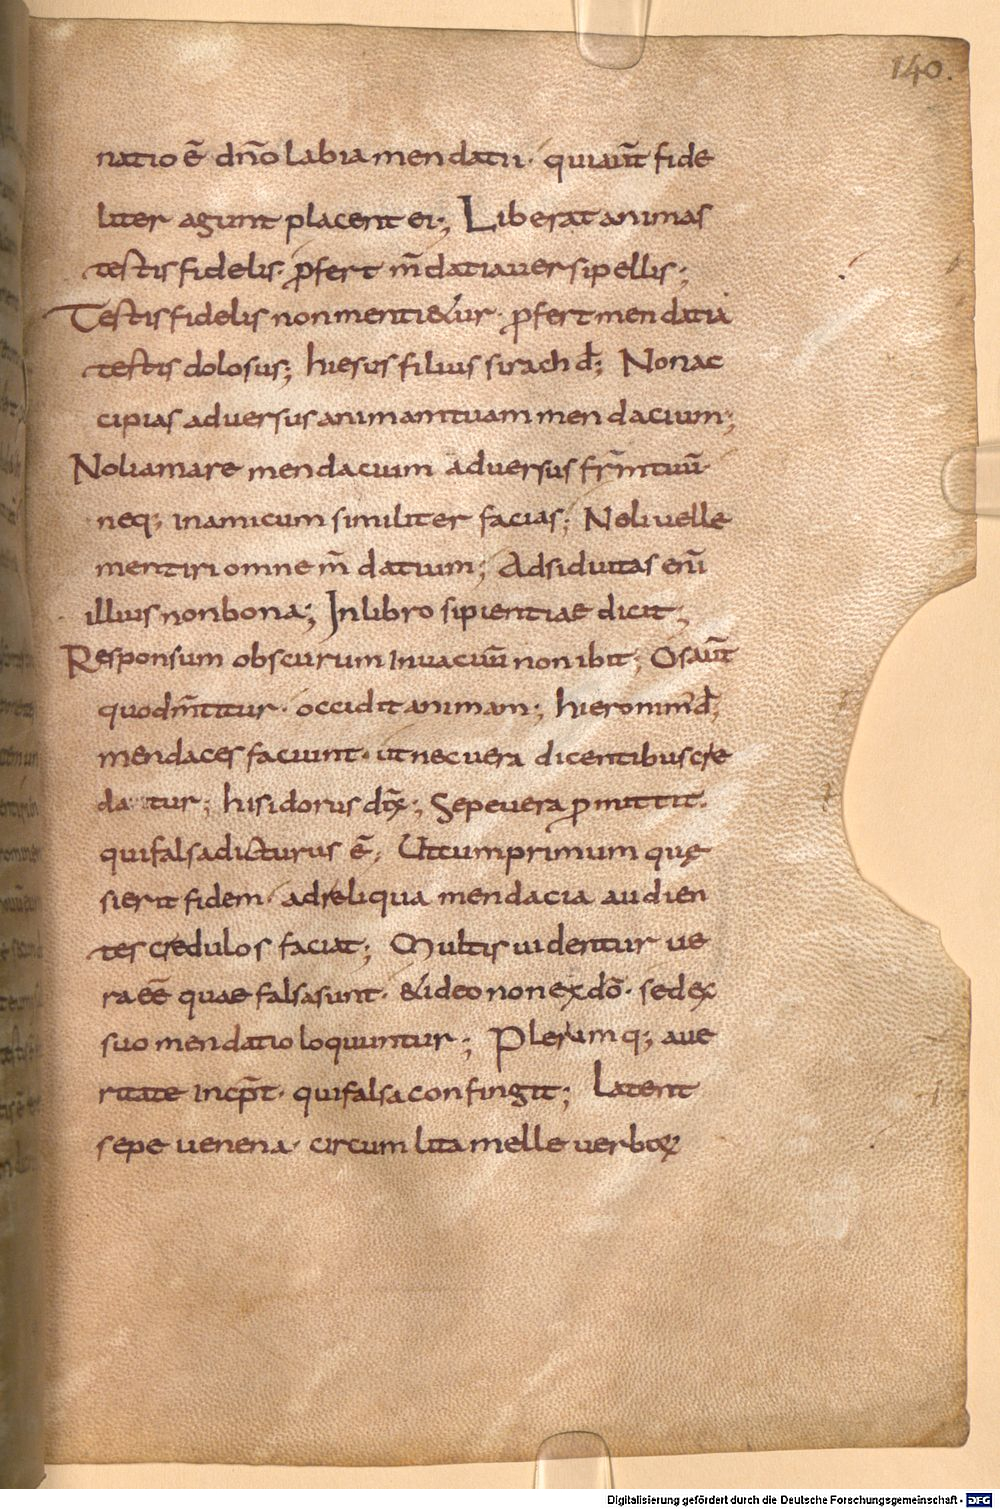 140.
natio ē dn̄o labia mendatii· qui aūt fide
liter agunt placent ei; Liberat animas
testis fidelis· ꝓfert m̄datia uersipellis;
Testis fidelis non menti&ur· ꝓfert mendatia
testis dolosus; hiesus filius sirach d̄; Non ac
cipias adversus animam tuam mendacium;
Noli amare mendacium adversus fr̄m tuū·
neq; in amicum similiter facias; Noli uelle
mentiri omne m̄datium; Adsiduitas enī
illius non bona; In libro sipientiae dicit;
Responsum obscurum in vacuū non ibit; Os aūt
quod m̄titur· occidit animam; hieronim' d̄;
mendaces faciunt· ut nec uera dicentibus cre
da tur; hisidorus dix̄; Sepe uera ꝓmittit·
qui falsa dicturus ē; Ut cum primum quę
sierit fidem· ad reliqua mendacia audien
tes credulos faciat; Multis uidentur ue
ra eē quae falsa sunt· & ideo non ex dō· sed ex
suo mendatio loquuntur; Plerumq; a ue
ritate incp̄t· qui falsa confingit; Latent
sepe uenena· circumlita melle uerboꝝ
Digitalisierung gefördert durch die Deutsche Forschungsgemeinschaft - DFG